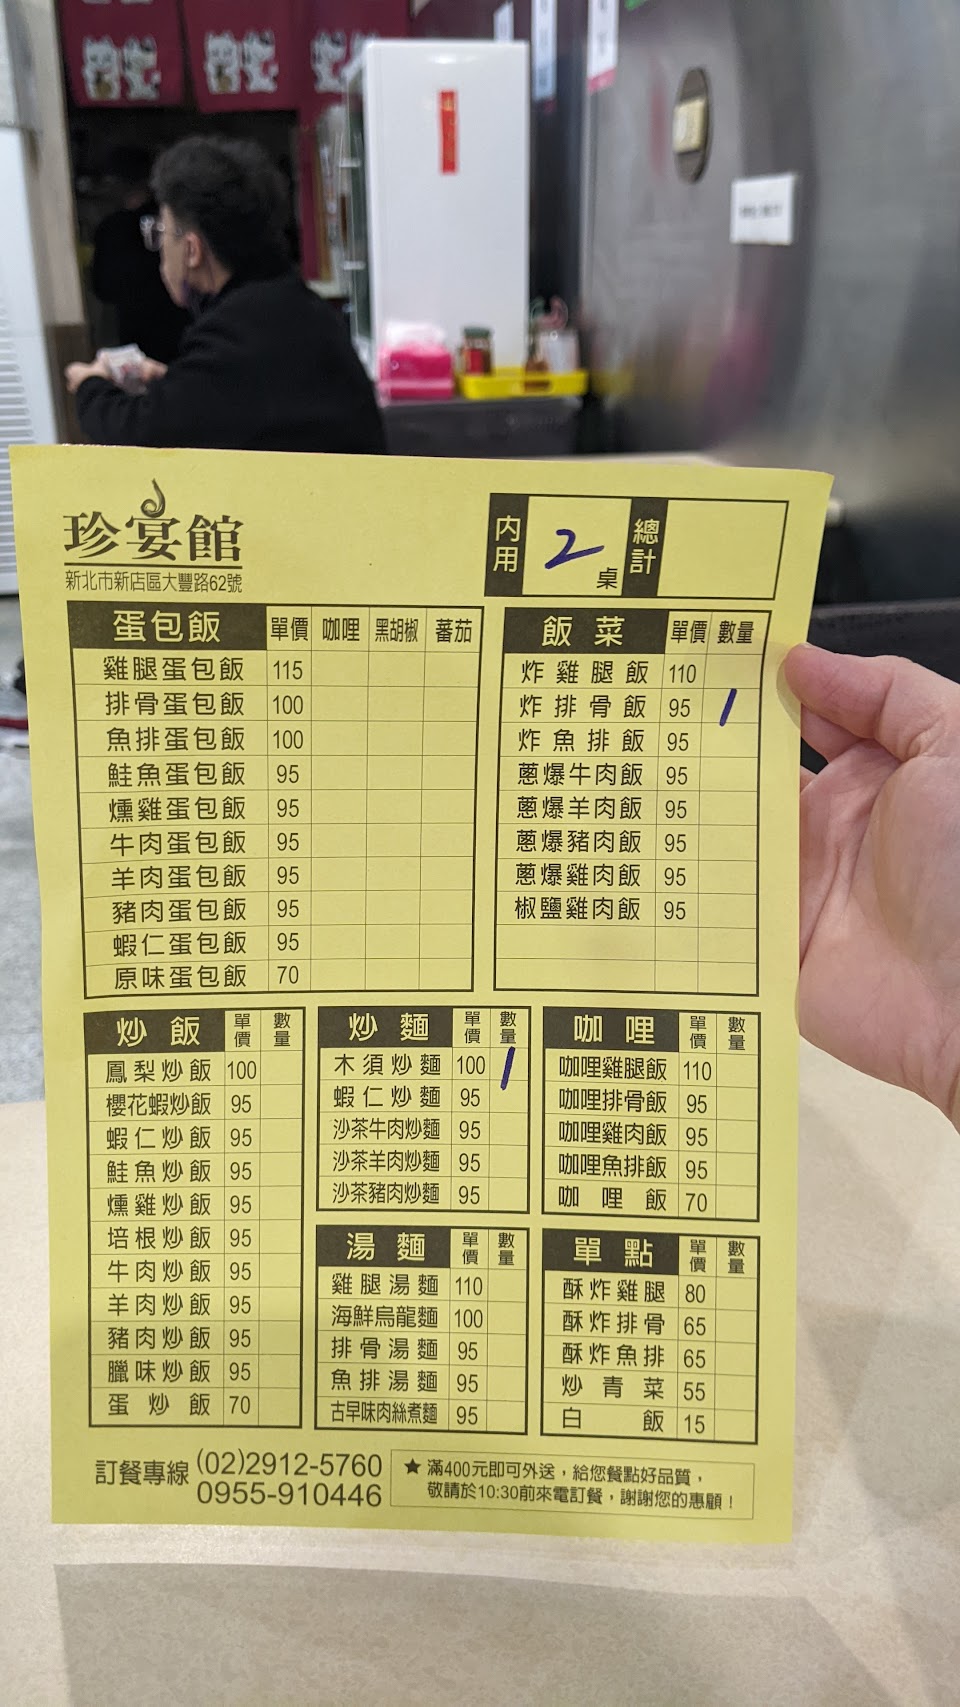 珍宴館
新北市新店區大豐路62號
內用 2 桌 總計
蛋包飯 單價 咖哩 黑胡椒 蕃茄
雞腿蛋包飯 115
排骨蛋包飯 100
魚排蛋包飯 100
鮭魚蛋包飯 95
燻雞蛋包飯 95
牛肉蛋包飯 95
羊肉蛋包飯 95
豬肉蛋包飯 95
蝦仁蛋包飯 95
原味蛋包飯 70
飯菜 單價 數量
炸雞腿飯 110
炸排骨飯 95 1
炸魚排飯 95
蔥爆牛肉飯 95
蔥爆羊肉飯 95
蔥爆豬肉飯 95
蔥爆雞肉飯 95
椒鹽雞肉飯 95
炒飯 單價 數量
鳳梨炒飯 100
櫻花蝦炒飯 95
蝦仁炒飯 95
鮭魚炒飯 95
燻雞炒飯 95
培根炒飯 95
牛肉炒飯 95
羊肉炒飯 95
豬肉炒飯 95
臘味炒飯 95
蛋炒飯 70
炒麵 單價 數量
木須炒麵 100 1
蝦仁炒麵 95
沙茶牛肉炒麵 95
沙茶羊肉炒麵 95
沙茶豬肉炒麵 95
湯麵 單價 數量
雞腿湯麵 110
海鮮烏龍麵 100
排骨湯麵 95
魚排湯麵 95
古早味肉絲煮麵 95
咖哩 單價 數量
咖哩雞腿飯 110
咖哩排骨飯 95
咖哩雞肉飯 95
咖哩魚排飯 95
咖哩飯 70
單點 單價 數量
酥炸雞腿 80
酥炸排骨 65
酥炸魚排 65
炒青菜 55
白飯 15
訂餐專線 (02)2912-5760
0955-910446
★滿400元即可外送，給您餐點好品質，
敬請於10:30前來電訂餐，謝謝您的惠顧！